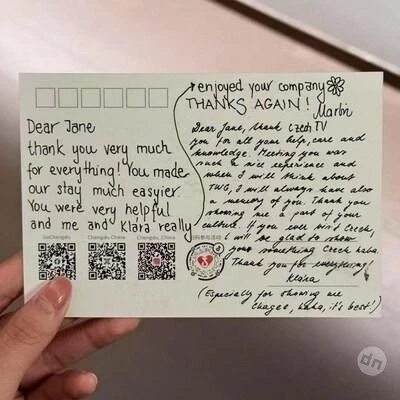 Dear Jane
thank you very much
for everything! You made
our stay much easyier.
You were very helpful
and me and Klára really
enjoyed your company
THANKS AGAIN!
Martin
Czech TV
Dear Jane, thank
you for all your help, care and
knowledge. Meeting you was
such a nice experience and
when I will think about
TWG, I will always have also
a memory of you. Thank you
showing me a part of your
culture. If you ever visit Czech,
I will be glad to show
you something Czech haha.
Thank you for everything!
Klára
(Especially for showing me
Chagee, haha, it's best!)
GoChengdu
Chengdu, China
Chengdu, China
dn